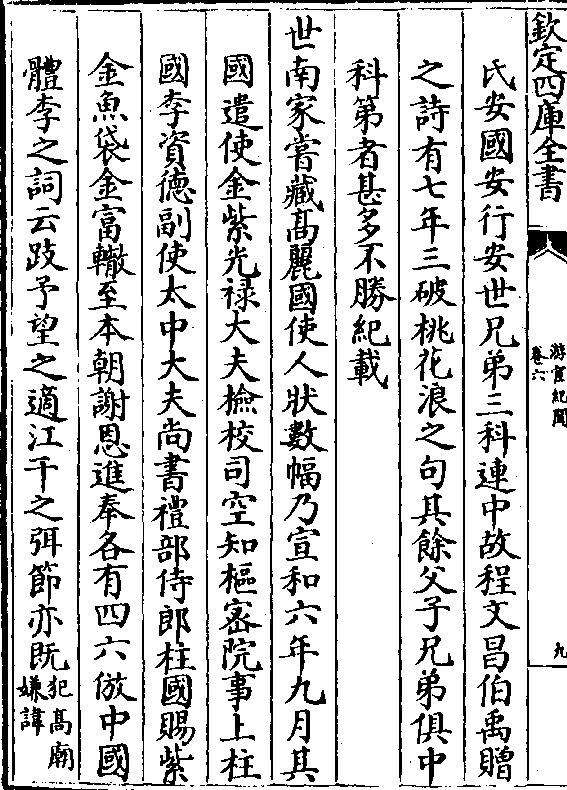 欽定四庫全書
游宦紀聞
卷六
九
氏安國安行安世兄弟三科連中故程文昌伯禹贈
之詩有七年三破桃花浪之句其餘父子兄弟俱中
科第者甚多不勝紀載
世南家嘗藏髙麗國使人狀數幅乃宣和六年九月其
國遣使金紫光禄大夫檢校司空知樞密院事上柱
國李資德副使太中大夫尚書禮部侍郎柱國賜紫
金魚袋金富轍至本朝謝恩進奉各有四六倣中國
體李之詞云跂予望之適江干之弭節亦既犯髙廟嫌諱